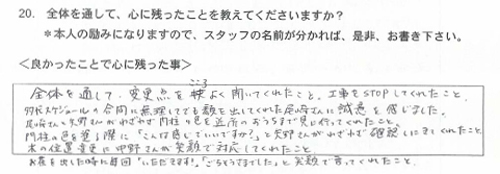 20. 全体を通して、心に残ったことを教えてくださいますか？
＊本人の励みになりますので、スタッフの名前が分かれば、是非、お書き下さい。
＜良かったことで心に残った事＞
こころ
全体を通して、変更点を快よく聞いてくれたこと。工事をSTOPしてくれたこと。
スケジュールの合間に無理してでも顔を出してくれた尾崎さんに誠意を感じました。
尾崎さんと矢野さんがわざわざ門柱の色を近所のおうちまで見に行ってくれたこと。
門柱の色を塗る際に「こんな感じでいいですか？」と矢野さんがわざわざ確認しにきてくれたこと。
木の位置変更に中野さんが笑顔で対応してくれたこと。
お茶を出した時に毎回「いただきます!」「ごちそうさまでした」と笑顔で言ってくれたこと。